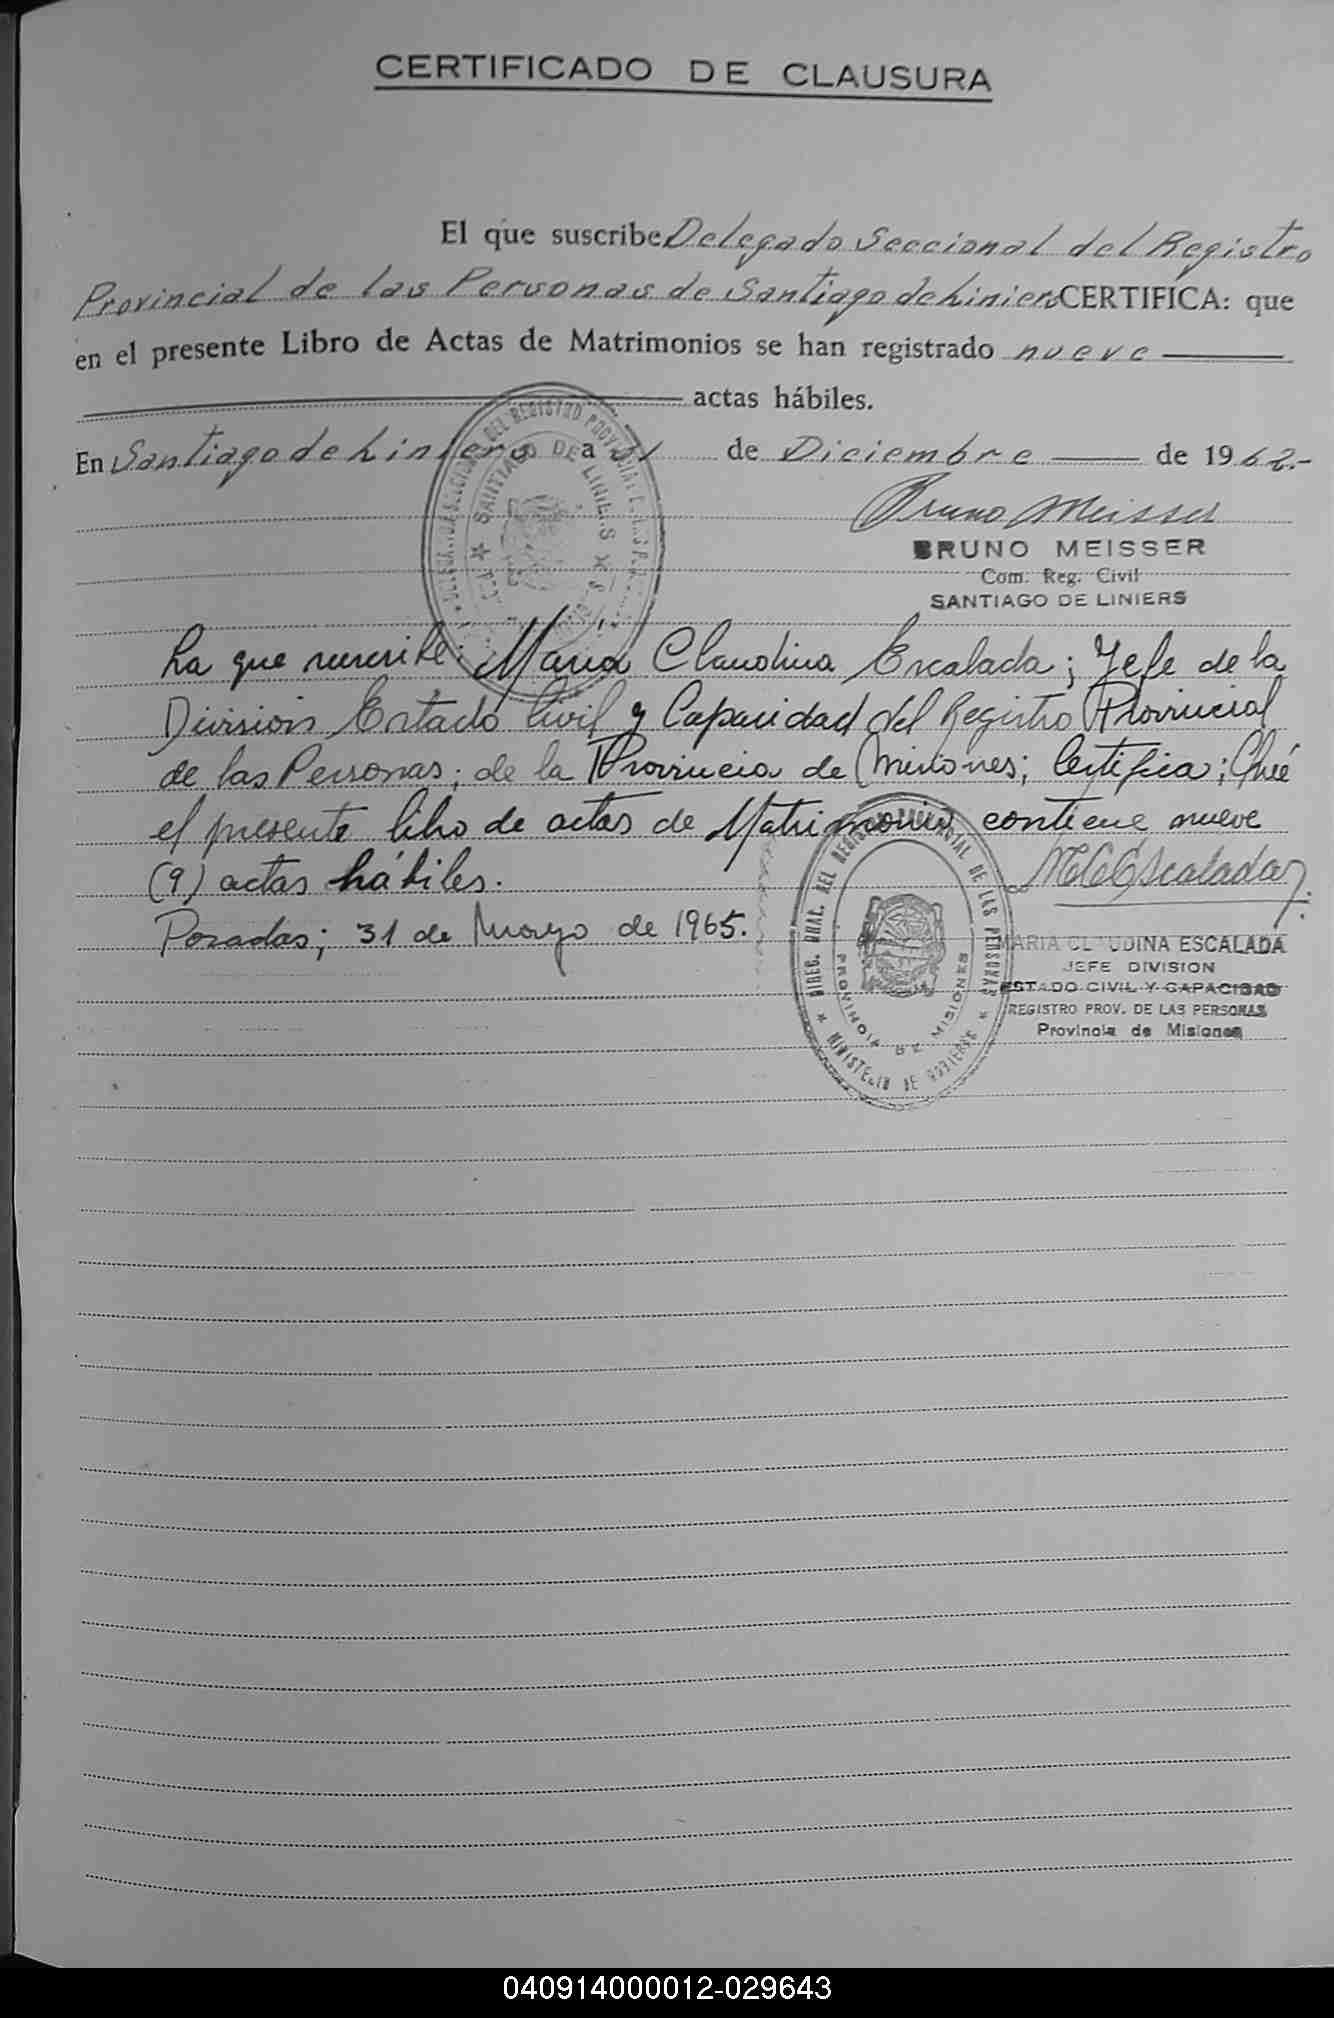 CERTIFICADO DE CLAUSURA
El que suscribe Delegado Seccional del Registro
Provincial de las Personas de Santiago de Liniers CERTIFICA: que
en el presente Libro de Actas de Matrimonios se han registrado nueve
actas hábiles.
En Santiago de Liniers a 31 de Diciembre de 1962.-
Bruno Meisser
BRUNO MEISSER
Com. Reg. Civil
SANTIAGO DE LINIERS
SANTIAGO DE LINIERS
La que suscribe: Maria Claudina Escalada; Jefe de la
División Estado Civil y Capacidad del Registro Provincial
de las Personas; de la Provincia de Misiones; Certifica; Qué
el presente libro de actas de Matrimonio contiene nueve
(9) actas hábiles.
MCEscalada
Posadas; 31 de Mayo de 1965.
MARIA CLAUDINA ESCALADA
JEFE DIVISION
ESTADO CIVIL Y CAPACIDAD
REGISTRO PROV. DE LAS PERSONAS
Provincia de Misiones
DIREC. GRAL. DEL REGISTRO PROVINCIAL DE LAS PERSONAS
PROVINCIA DE MISIONES
MINISTERIO DE GOBIERNO
040914000012-029643